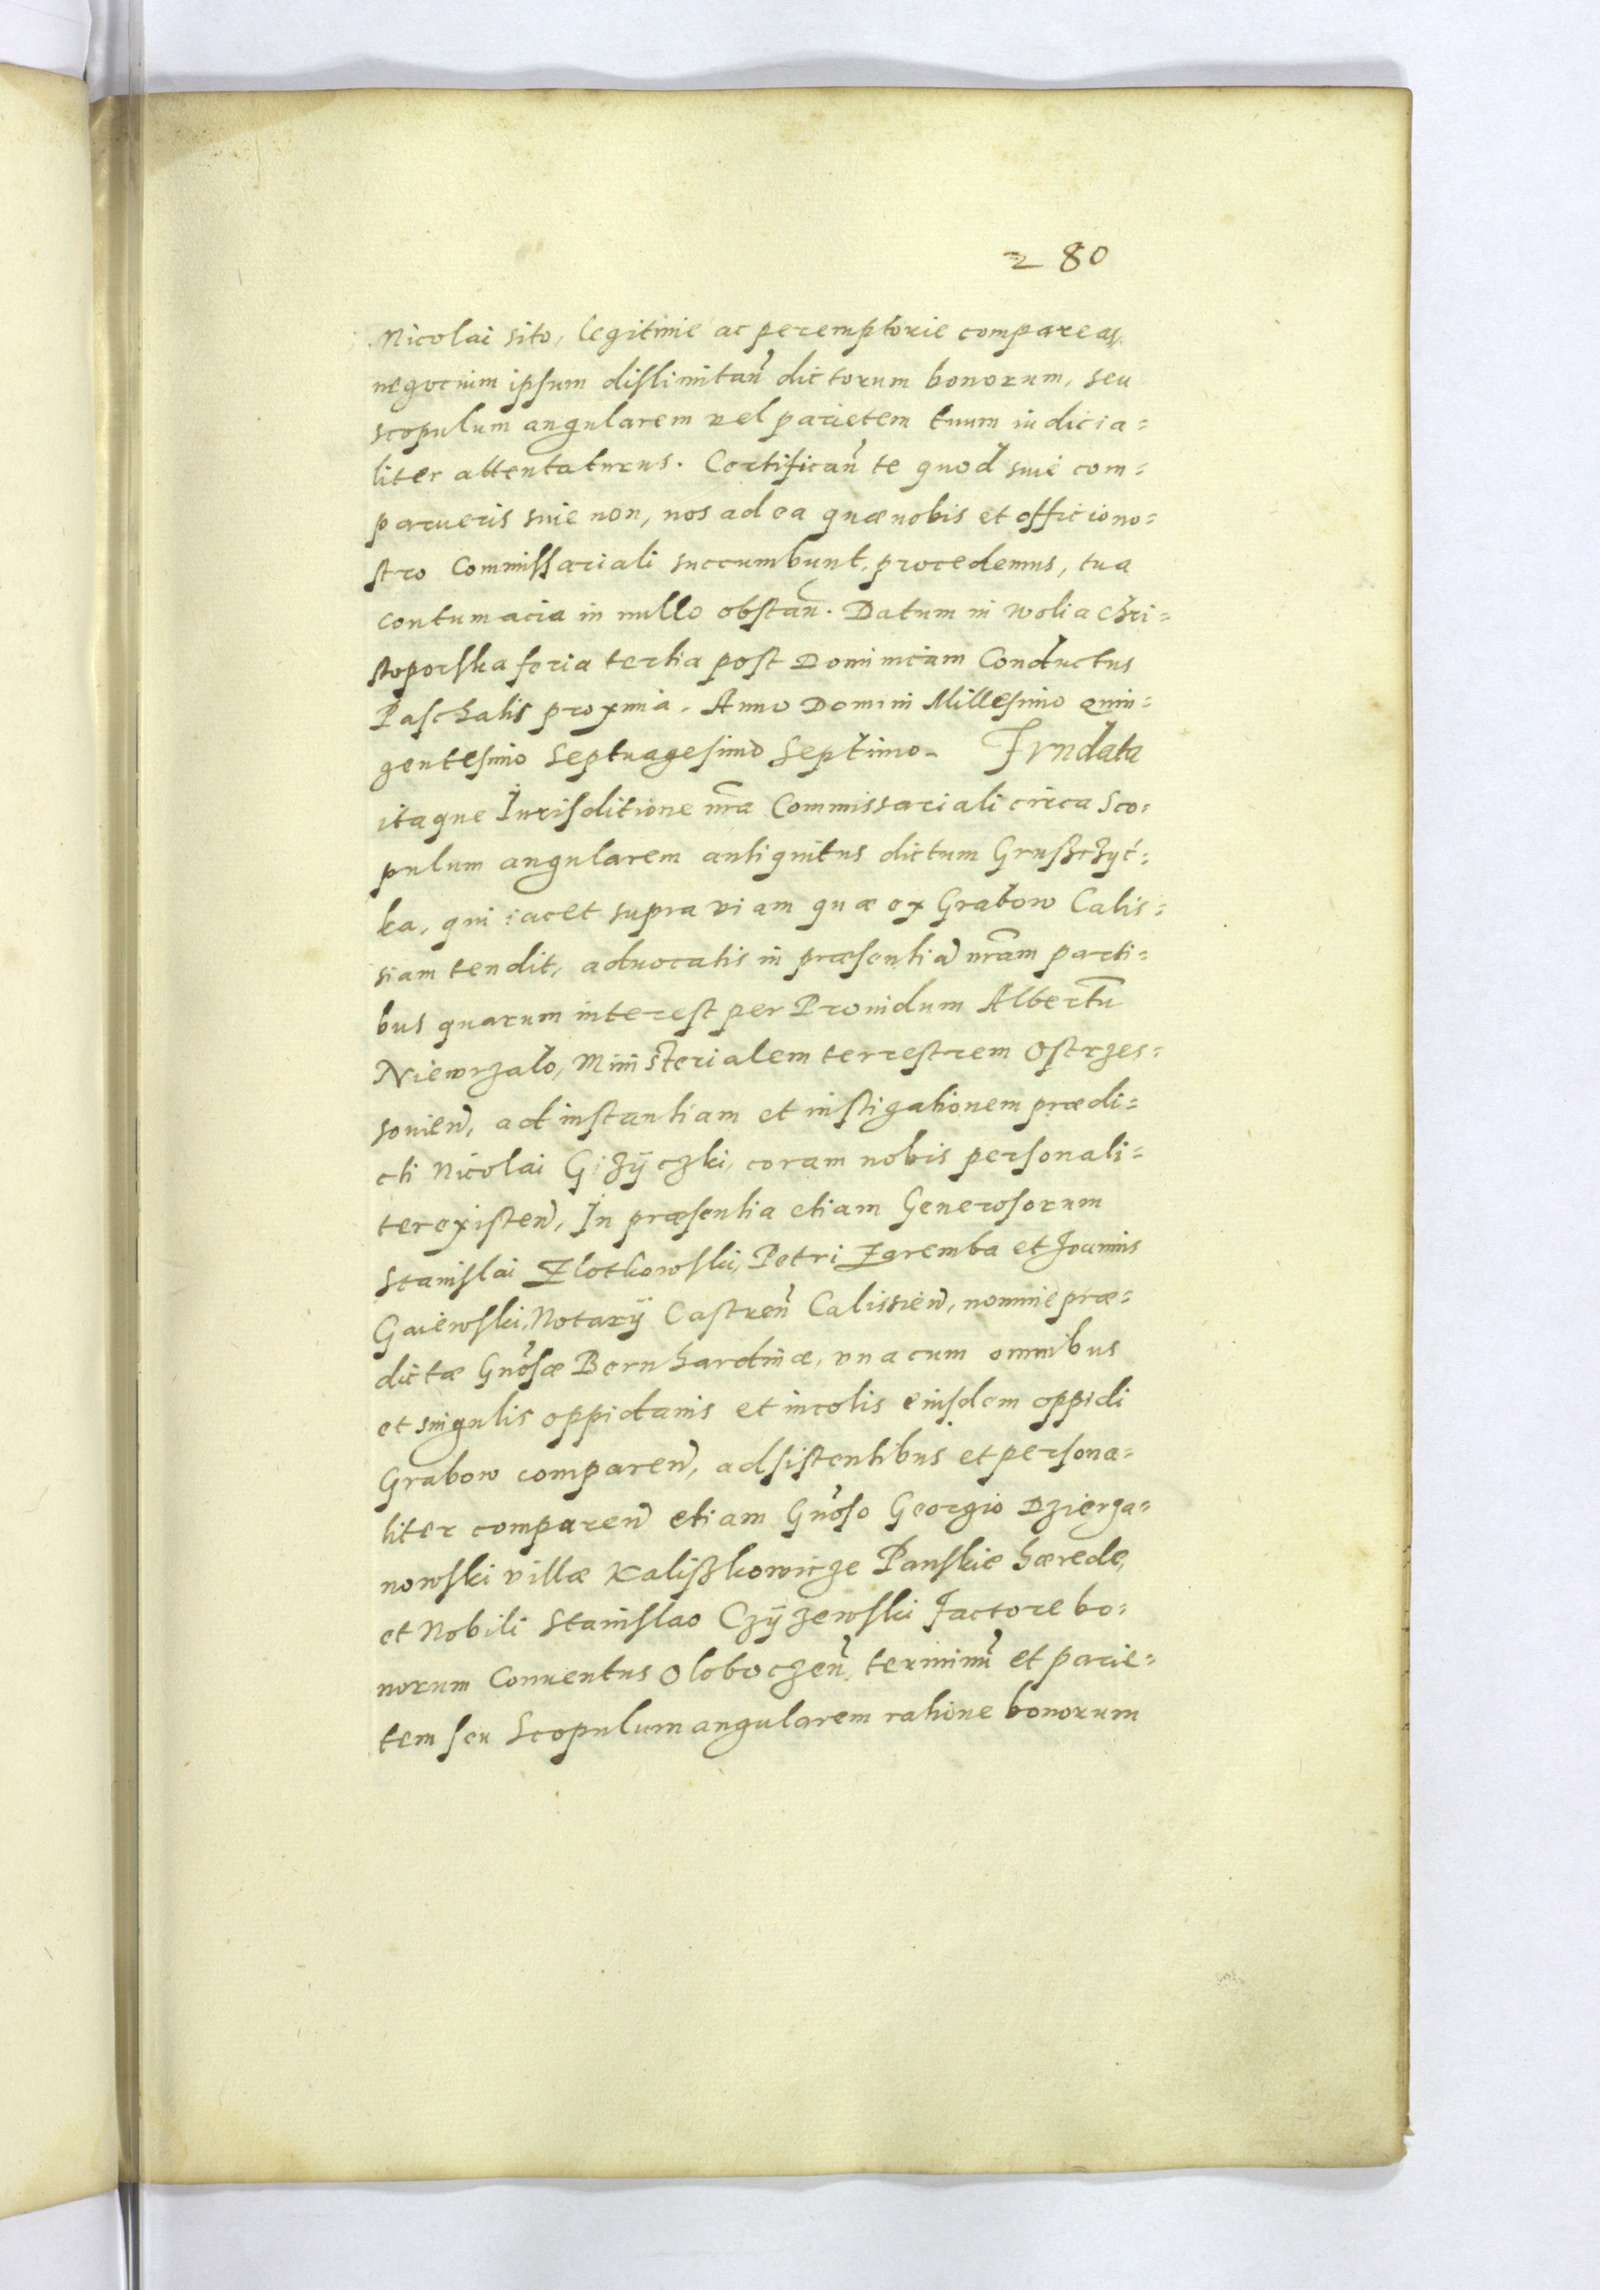 280
Nicolai sito, legitime ac peremptorie compareas,
negocium ipsum dislimitan̄ dictorum bonorum, seu
scopulum angularem vel parietem tuum iudicia=
liter attentaturus. Certifican̄ te quod siue com=
parueris siue non, nos ad ea quæ nobis et officio no=
stro Commissariali succumbunt, procedemus, tua
contumacia in nullo obstan̄. Datum in Wolia Chri=
stoporska feria tertia post Dominicam Conductus
Paschalis proxima. Anno Domini Millesimo quin=
gentesimo Septuagesimo Septimo. Fundata
itaque Jurisditione nr̄a Commissariali circa Sco=
pulum angularem antiquitus dictum Gruszczyc=
ka, qui iacet supra viam quæ ex Grabow Calis=
siam tendit, aduocatis in præsentia nr̄am parti=
bus quarum interest per Prouidum Albertū
Niewrzalo, Ministerialem terrestrem Ostrzes=
souien̄, ad instantiam et instigationem prædi=
cti Nicolai Giżÿczki, coram nobis personali=
ter existen̄, In præsentia etiam Generosorum
Stanislai Zlotkowski, Petri Zaremba et Joannis
Gaiewski, Notarÿ Castren̄ Calissien̄, nomine præ=
dictæ Gn̄osæ Bernhardinæ, vna cum omnibus
et singulis oppidanis et incolis eiusdem oppidi
Grabow comparen̄, adsistentibus et persona=
liter comparen̄ etiam Gn̄oso Georgio Dzierza=
nowski villæ Kaliszkowicze Panskie hærede,
et Nobili Stanislao Czÿzewski factore bo=
norum Conuentus Oloboczen̄, terminū et parie=
tem seu Scopulum angularem ratione bonorum